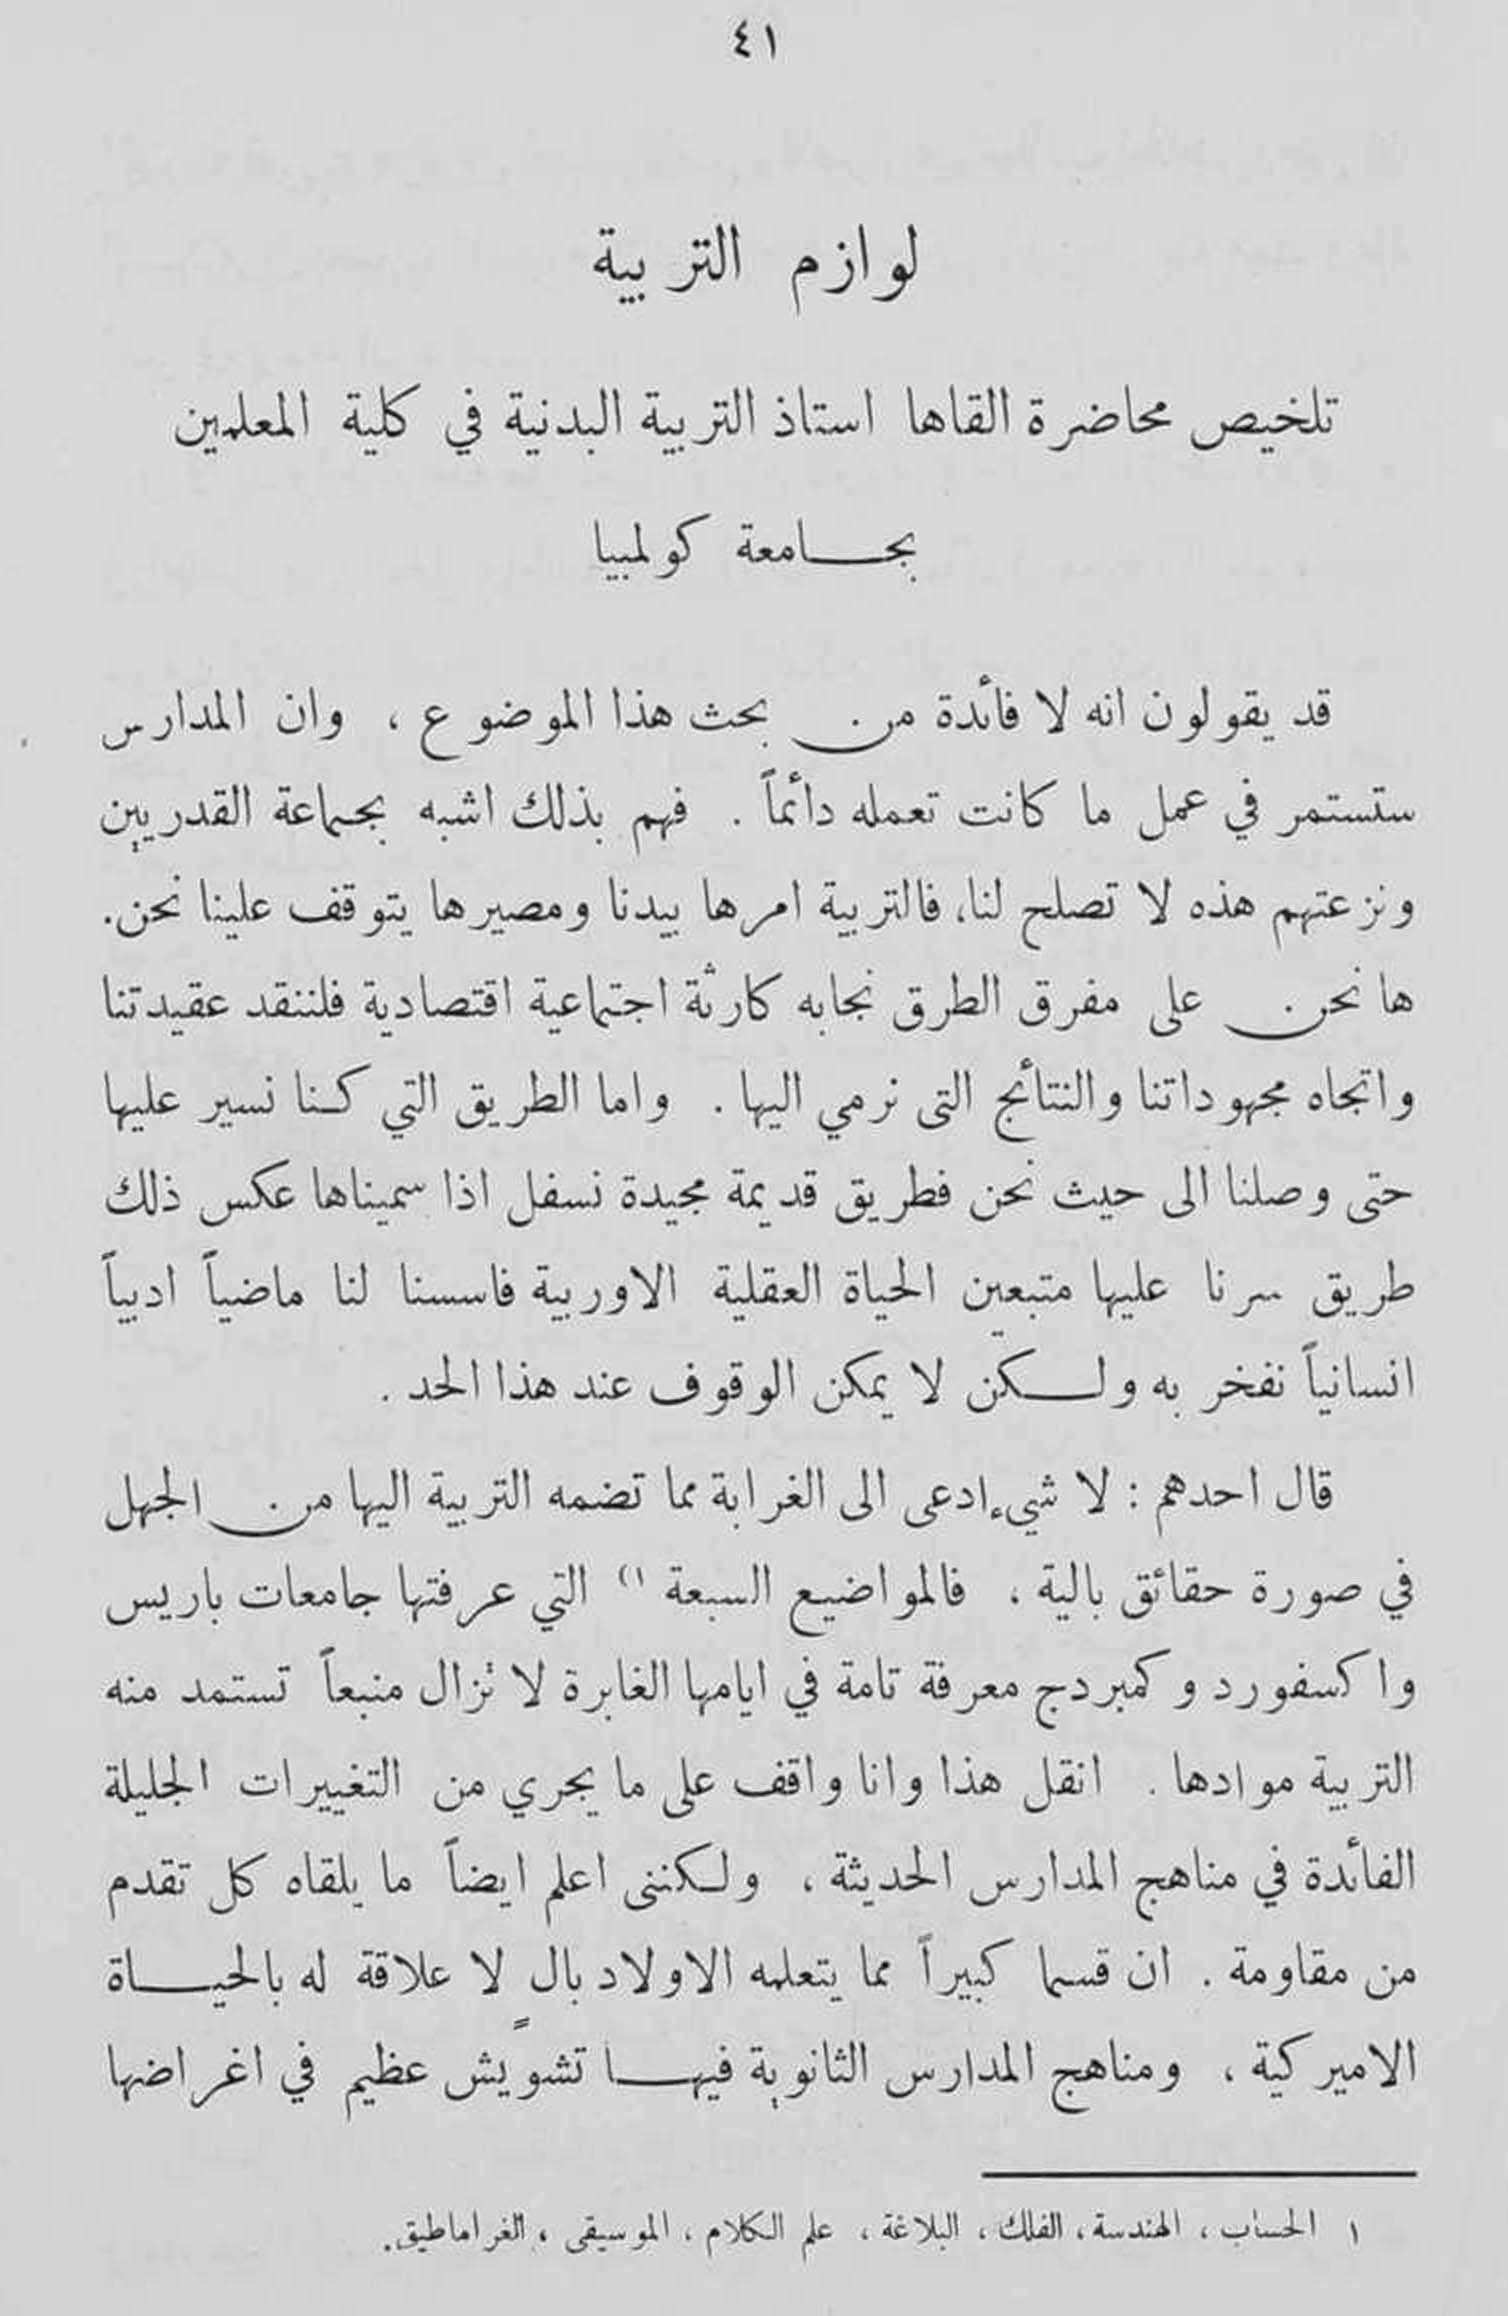 ٤١
لوازم التربية
تلخيص محاضرة القاها استاذ التربية البدنية في كلية المعلمين
بجامعة كولمبيا
قد يقولون انه لا فائدة من بحث هذا الموضوع ، وان المدارس
ستستمر في عمل ما كانت تعمله دائماً . فهم بذلك اشبه بجماعة القدريين
ونزعتهم هذه لا تصلح لنا، فالتربية امرها بيدنا ومصيرها يتوقف علينا نحن.
ها نحن على مفرق الطرق نجابه كارثة اجتماعية اقتصادية فلننقد عقيدتنا
واتجاه مجهوداتنا والنتائج التى نرمي اليها . واما الطريق التي كنا نسير عليها
حتى وصلنا الى حيث نحن فطريق قديمة مجيدة نسفل اذا سميناها عكس ذلك
طريق سرنا عليها متبعين الحياة العقلية الاوربية فاسسنا لنا ماضياً ادبياً
انسانياً نفخر به ولكن لا يمكن الوقوف عند هذا الحد .
قال احدهم : لا شيء ادعى الى الغرابة مما تضمه التربية اليها من الجهل
في صورة حقائق بالية ، فالمواضيع السبعة ١) التي عرفتها جامعات باريس
واكسفورد وكمبردج معرفة تامة في ايامها الغابرة لا تزال منبعاً تستمد منه
التربية موادها . انقل هذا وانا واقف على ما يجري من التغييرات الجليلة
الفائدة في مناهج المدارس الحديثة ، ولكننى اعلم ايضاً ما يلقاه كل تقدم
من مقاومة . ان قسما كبيراً مما يتعلمه الاولاد بال لا علاقة له بالحياة
الاميركية ، ومناهج المدارس الثانوية فيها تشويش عظيم في اغراضها
١ الحساب ، الهندسة ، الفلك ، البلاغة ، علم الكلام ، الموسيقى ، الغراماطيق.